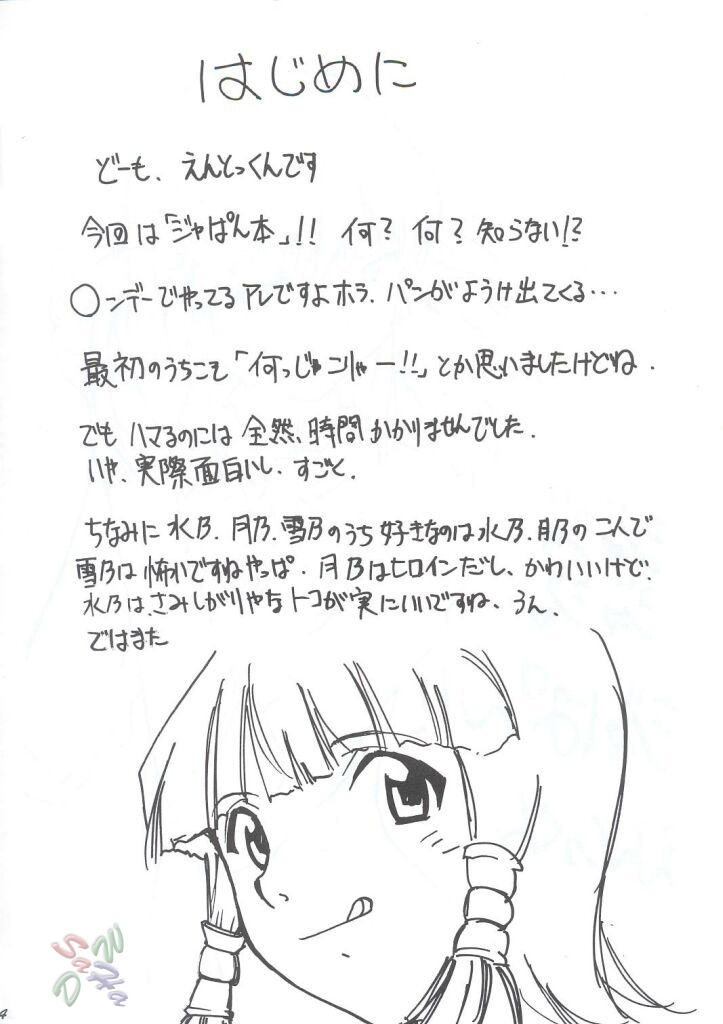 はじめに
どーも、えんとっくんです
今回は「ジャぱん本」!! 何? 何? 知らない!?
○ンデーでやってるアレですよホラ、パンがようけ出てくる…
最初のうちこそ「何っじゃこりゃー!!」とか思いましたけどね.
でも ハマるのには全然、時間かかりませんでした.
いや、実際面白いし、すごと.
ちなみに 水乃、月乃、雪乃のうち好きなのは水乃、月乃の二人で
雪乃は怖いですねやっぱ。月乃はヒロインだし、かわいいけど、
水乃は、さみしがりやなトコが実にいいですね、うん.
ではまた
4